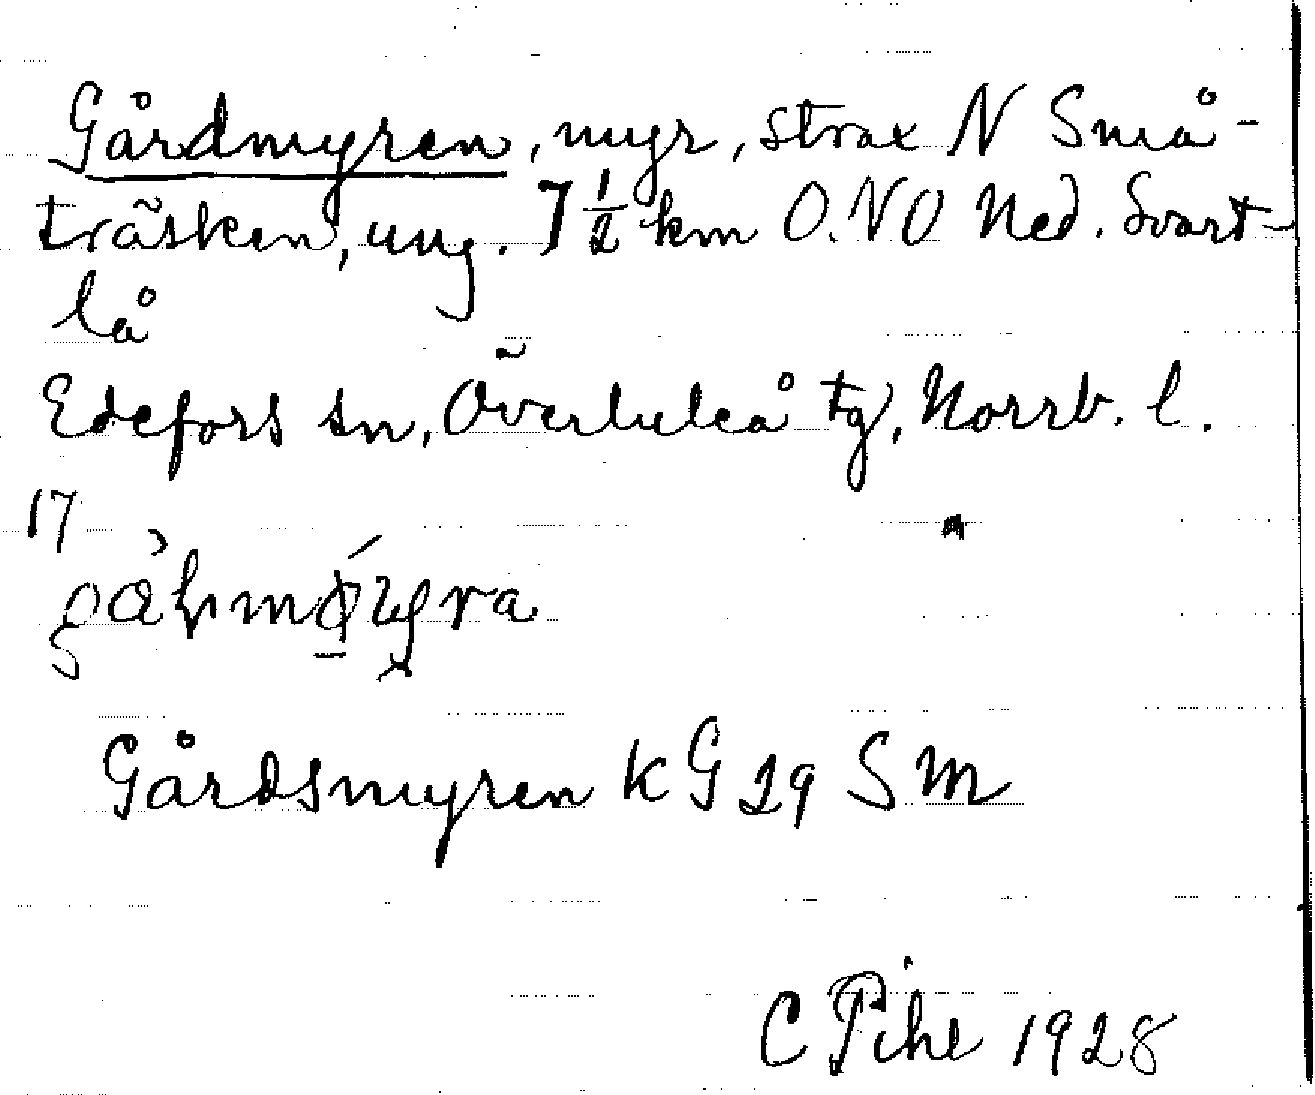 Gårdmyren, myr, strax N Små-
träsken, ung. 7 1/2 km O.NO Ned. Svart-
lå
Edefors sn, Överluleå tg, Norrb. l.
17
Gårdsmyren KG 29 SM
C Pihl 1928